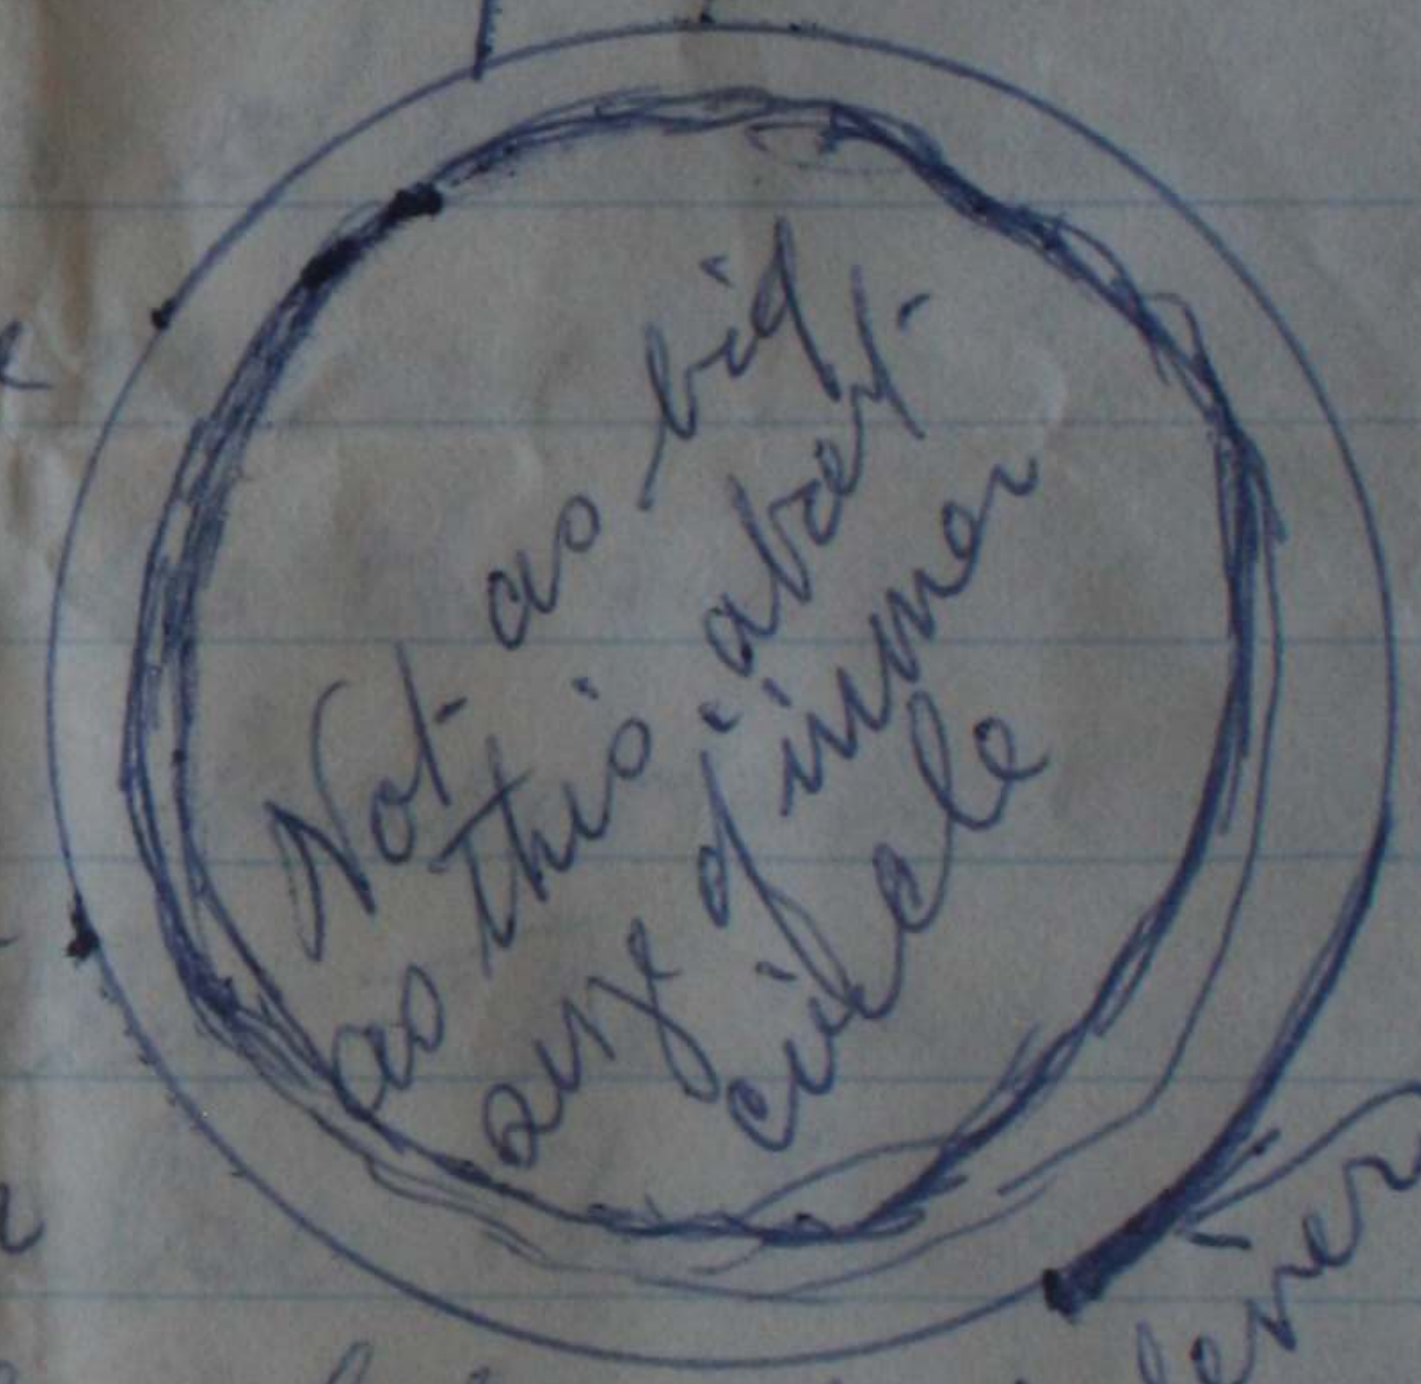 Not as big
as this, about
size of inner
circle